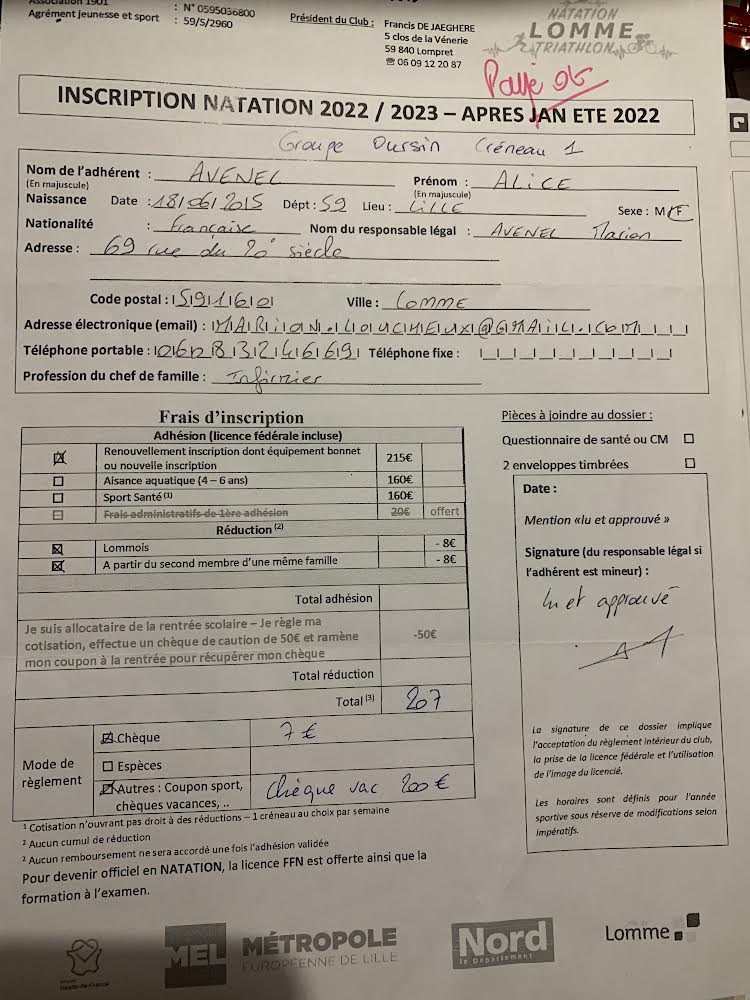 Association 1901 : N° 0595036800
Agrément jeunesse et sport : 59/S/2960
Président du Club : Francis DE JAEGHERE
5 clos de la Vénerie
59 840 Lompret
☎ 06 09 12 20 87
NATATION
LOMME
TRIATHLON
Payé
INSCRIPTION NATATION 2022 / 2023 – APRES JAN ETE 2022
Groupe Oursin Créneau 1
Nom de l'adhérent : AVENEL Prénom : ALICE
(En majuscule) (En majuscule)
Naissance Date : 18/06/2015 Dépt : 59 Lieu : LILLE Sexe : M/F
Nationalité : Française Nom du responsable légal : AVENEL Marion
Adresse : 69 rue du 20e siècle
Code postal : 59160 Ville : LOMME
Adresse électronique (email) : MARION.LOUCHEUX@GMAIL.COM
Téléphone portable : 0628324669 Téléphone fixe :
Profession du chef de famille : Infirmier
Frais d'inscription
Adhésion (licence fédérale incluse)
☒ Renouvellement inscription dont équipement bonnet ou nouvelle inscription 215€
☐ Aisance aquatique (4 – 6 ans) 160€
☐ Sport Santé (1) 160€
☐ Frais administratifs de 1ère adhésion 20€ offert
Réduction (2)
☒ Lommois - 8€
☒ A partir du second membre d'une même famille - 8€
Total adhésion
Je suis allocataire de la rentrée scolaire – Je règle ma
cotisation, effectue un chèque de caution de 50€ et ramène -50€
mon coupon à la rentrée pour récupérer mon chèque
Total réduction
Total (3) 207
Mode de règlement
☒ Chèque 7 €
☐ Espèces
☒ Autres : Coupon sport, chèques vacances, .. Chèque vac 200 €
1 Cotisation n'ouvrant pas droit à des réductions – 1 créneau au choix par semaine
2 Aucun cumul de réduction
2 Aucun remboursement ne sera accordé une fois l'adhésion validée
Pour devenir officiel en NATATION, la licence FFN est offerte ainsi que la
formation à l'examen.
Pièces à joindre au dossier :
Questionnaire de santé ou CM ☐
2 enveloppes timbrées ☐
Date :
Mention «lu et approuvé »
Signature (du responsable légal si
l'adhérent est mineur) :
lu et approuvé
La signature de ce dossier implique
l'acceptation du règlement intérieur du club,
la prise de la licence fédérale et l'utilisation
de l'image du licencié.
Les horaires sont définis pour l'année
sportive sous réserve de modifications selon
impératifs.
Hauts-de-France
MEL MÉTROPOLE
EUROPÉENNE DE LILLE
Nord
le Département
Lomme